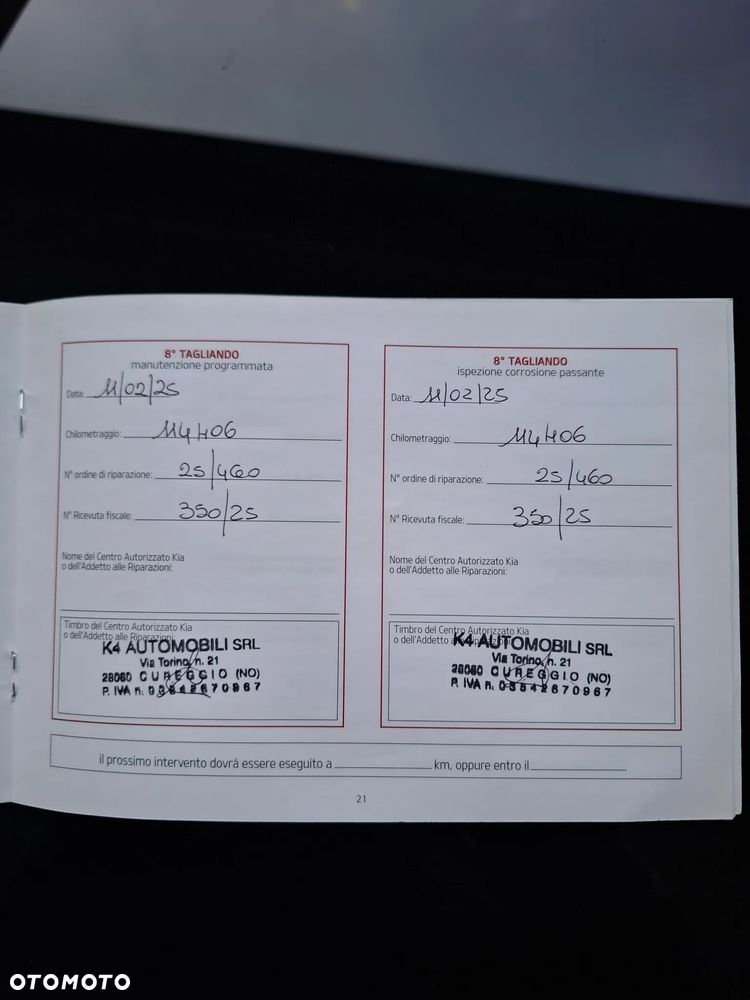 8° TAGLIANDO
manutenzione programmata
Data: 11/02/25
Chilometraggio: 114406
N° ordine di riparazione: 25/460
N° Ricevuta fiscale: 350/25
Nome del Centro Autorizzato Kia
o dell'Addetto alle Riparazioni:
Timbro del Centro Autorizzato Kia
o dell'Addetto alle Riparazioni:
K4 AUTOMOBILI SRL
Via Torino, n. 21
28060 CUREGGIO (NO)
P. IVA n. 03542670967
8° TAGLIANDO
ispezione corrosione passante
Data: 11/02/25
Chilometraggio: 114406
N° ordine di riparazione: 25/460
N° Ricevuta fiscale: 350/25
Nome del Centro Autorizzato Kia
o dell'Addetto alle Riparazioni:
Timbro del Centro Autorizzato Kia
o dell'Addetto alle Riparazioni:
K4 AUTOMOBILI SRL
Via Torino, n. 21
28060 CUREGGIO (NO)
P. IVA n. 03542670967
il prossimo intervento dovrà essere eseguito a km, oppure entro il
21
OTOMOTO